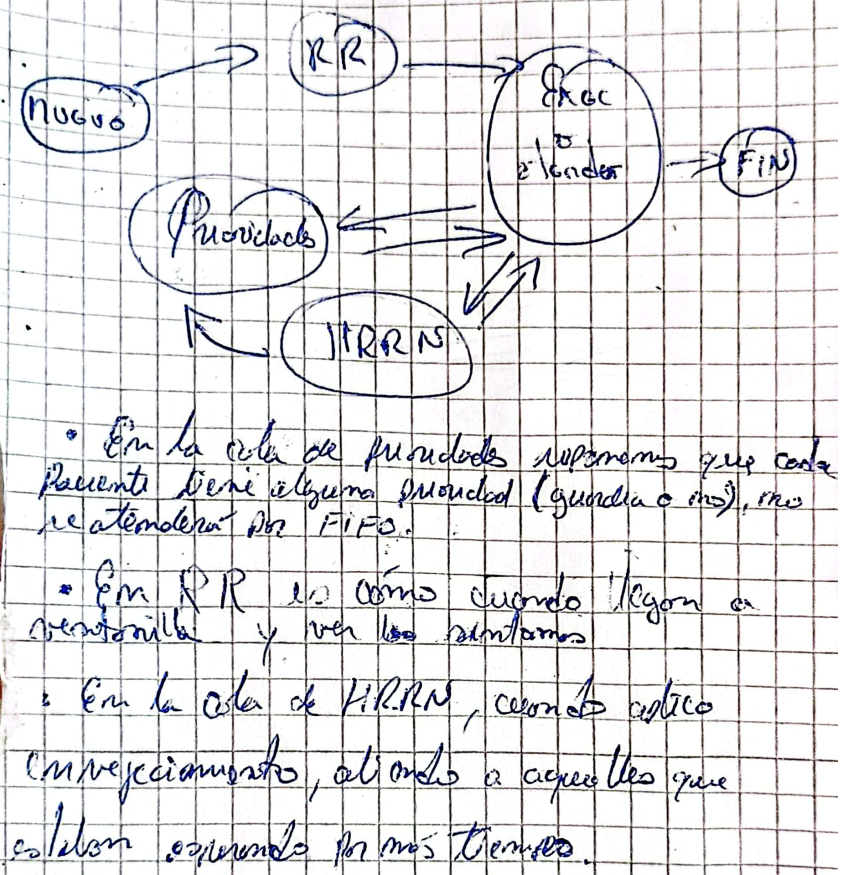 RR
Exec
o
atender
Nuevo
FIN
Prioridades
HRRN
• En la cola de prioridades suponemos que cada
paciente tiene alguna prioridad (guardia o no), no
se atenderá por FIFO.
• En RR es cómo cuando llegan a
ventanilla y ver los síntomas
• En la cola de HRRN, cuando aplico
envejecimiento, atiendo a aquellos que
estaban esperando por más tiempo.